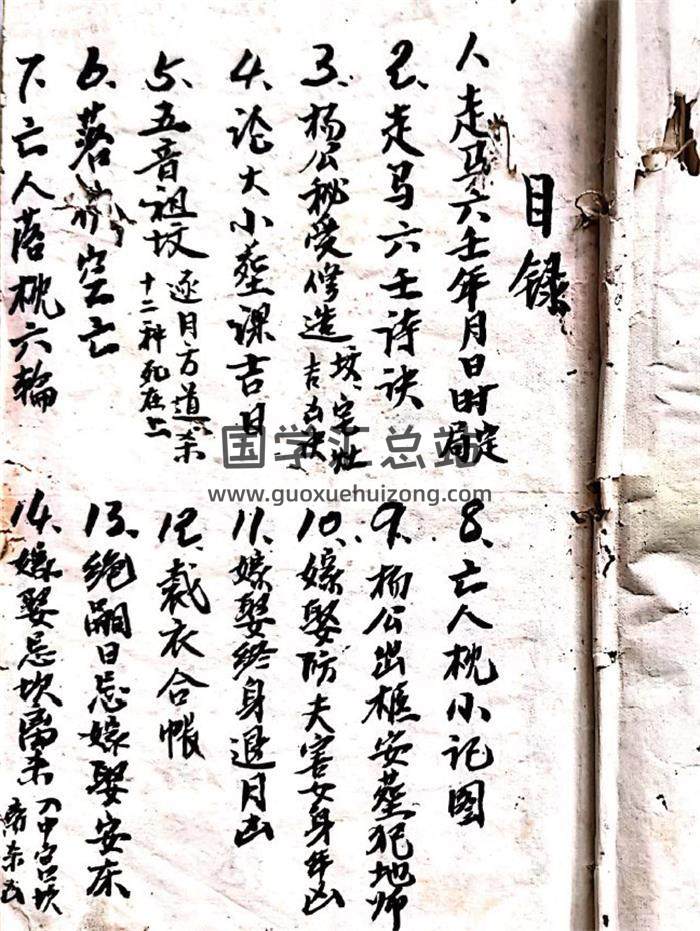 目录
1、走马六壬年月日时定局
2、走马六壬诗诀
3、杨公秘受修造坟、宅灶吉凶诀
4、论大小塟课吉日
5、五音祖坟逐月方道杀
十二种死在上
6、落 空亡
7、亡人落枕六輪
8、亡人枕小记图
9、杨公出枢安塟犯地师
10、嫁娶防夫害女身年凶
11、嫁娶终身退月凶
12、裁衣合帳
13、绝嗣日忌嫁娶安床
14、嫁娶忌坎离杀入中宫坎离杀凶
国学汇总站
www.guoxuehuizong.com